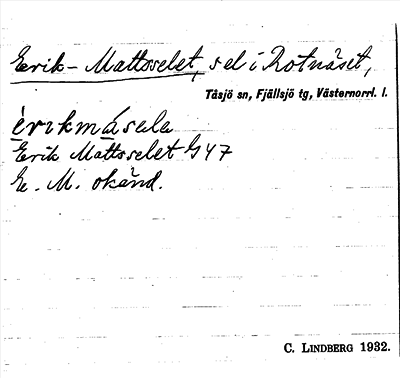 Erik-Mattsselet, sel i Rotnäset,
Tåsjö sn, Fjällsjö tg, Västernorrl. l.
èrikmásela
Erik Mattsselet G47
E. M. okänd.
C. LINDBERG 1932.